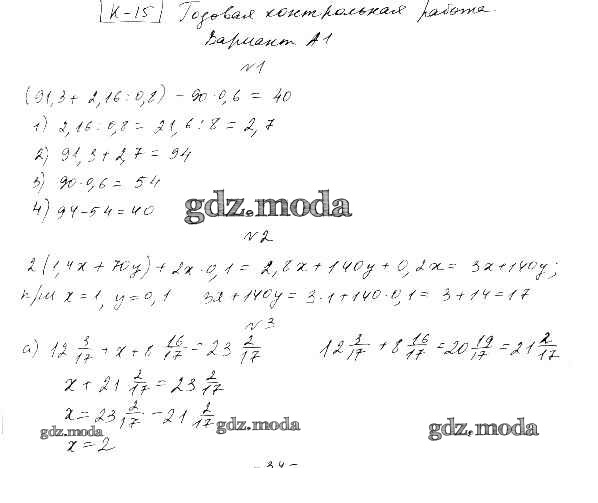 К-15 Годовая контрольная работа.
Вариант А1
№1
(91,3 + 2,16 : 0,8) - 90·0,6 = 40
1) 2,16 : 0,8 = 21,6 : 8 = 2,7
2) 91,3 + 2,7 = 94
3) 90·0,6 = 54
4) 94 - 54 = 40
gdz.moda
№2
2(1,4x + 70y) + 2x·0,1 = 2,8x + 140y + 0,2x = 3x + 140y;
при x = 1, y = 0,1 3x + 140y = 3·1 + 140·0,1 = 3 + 14 = 17
№3
а) 12 3/17 + x + 8 16/17 = 23 2/17 12 3/17 + 8 16/17 = 20 19/17 = 21 2/17
x + 21 2/17 = 23 2/17
x = 23 2/17 - 21 2/17
gdz.moda gdz.moda gdz.moda
x = 2
- 34 -